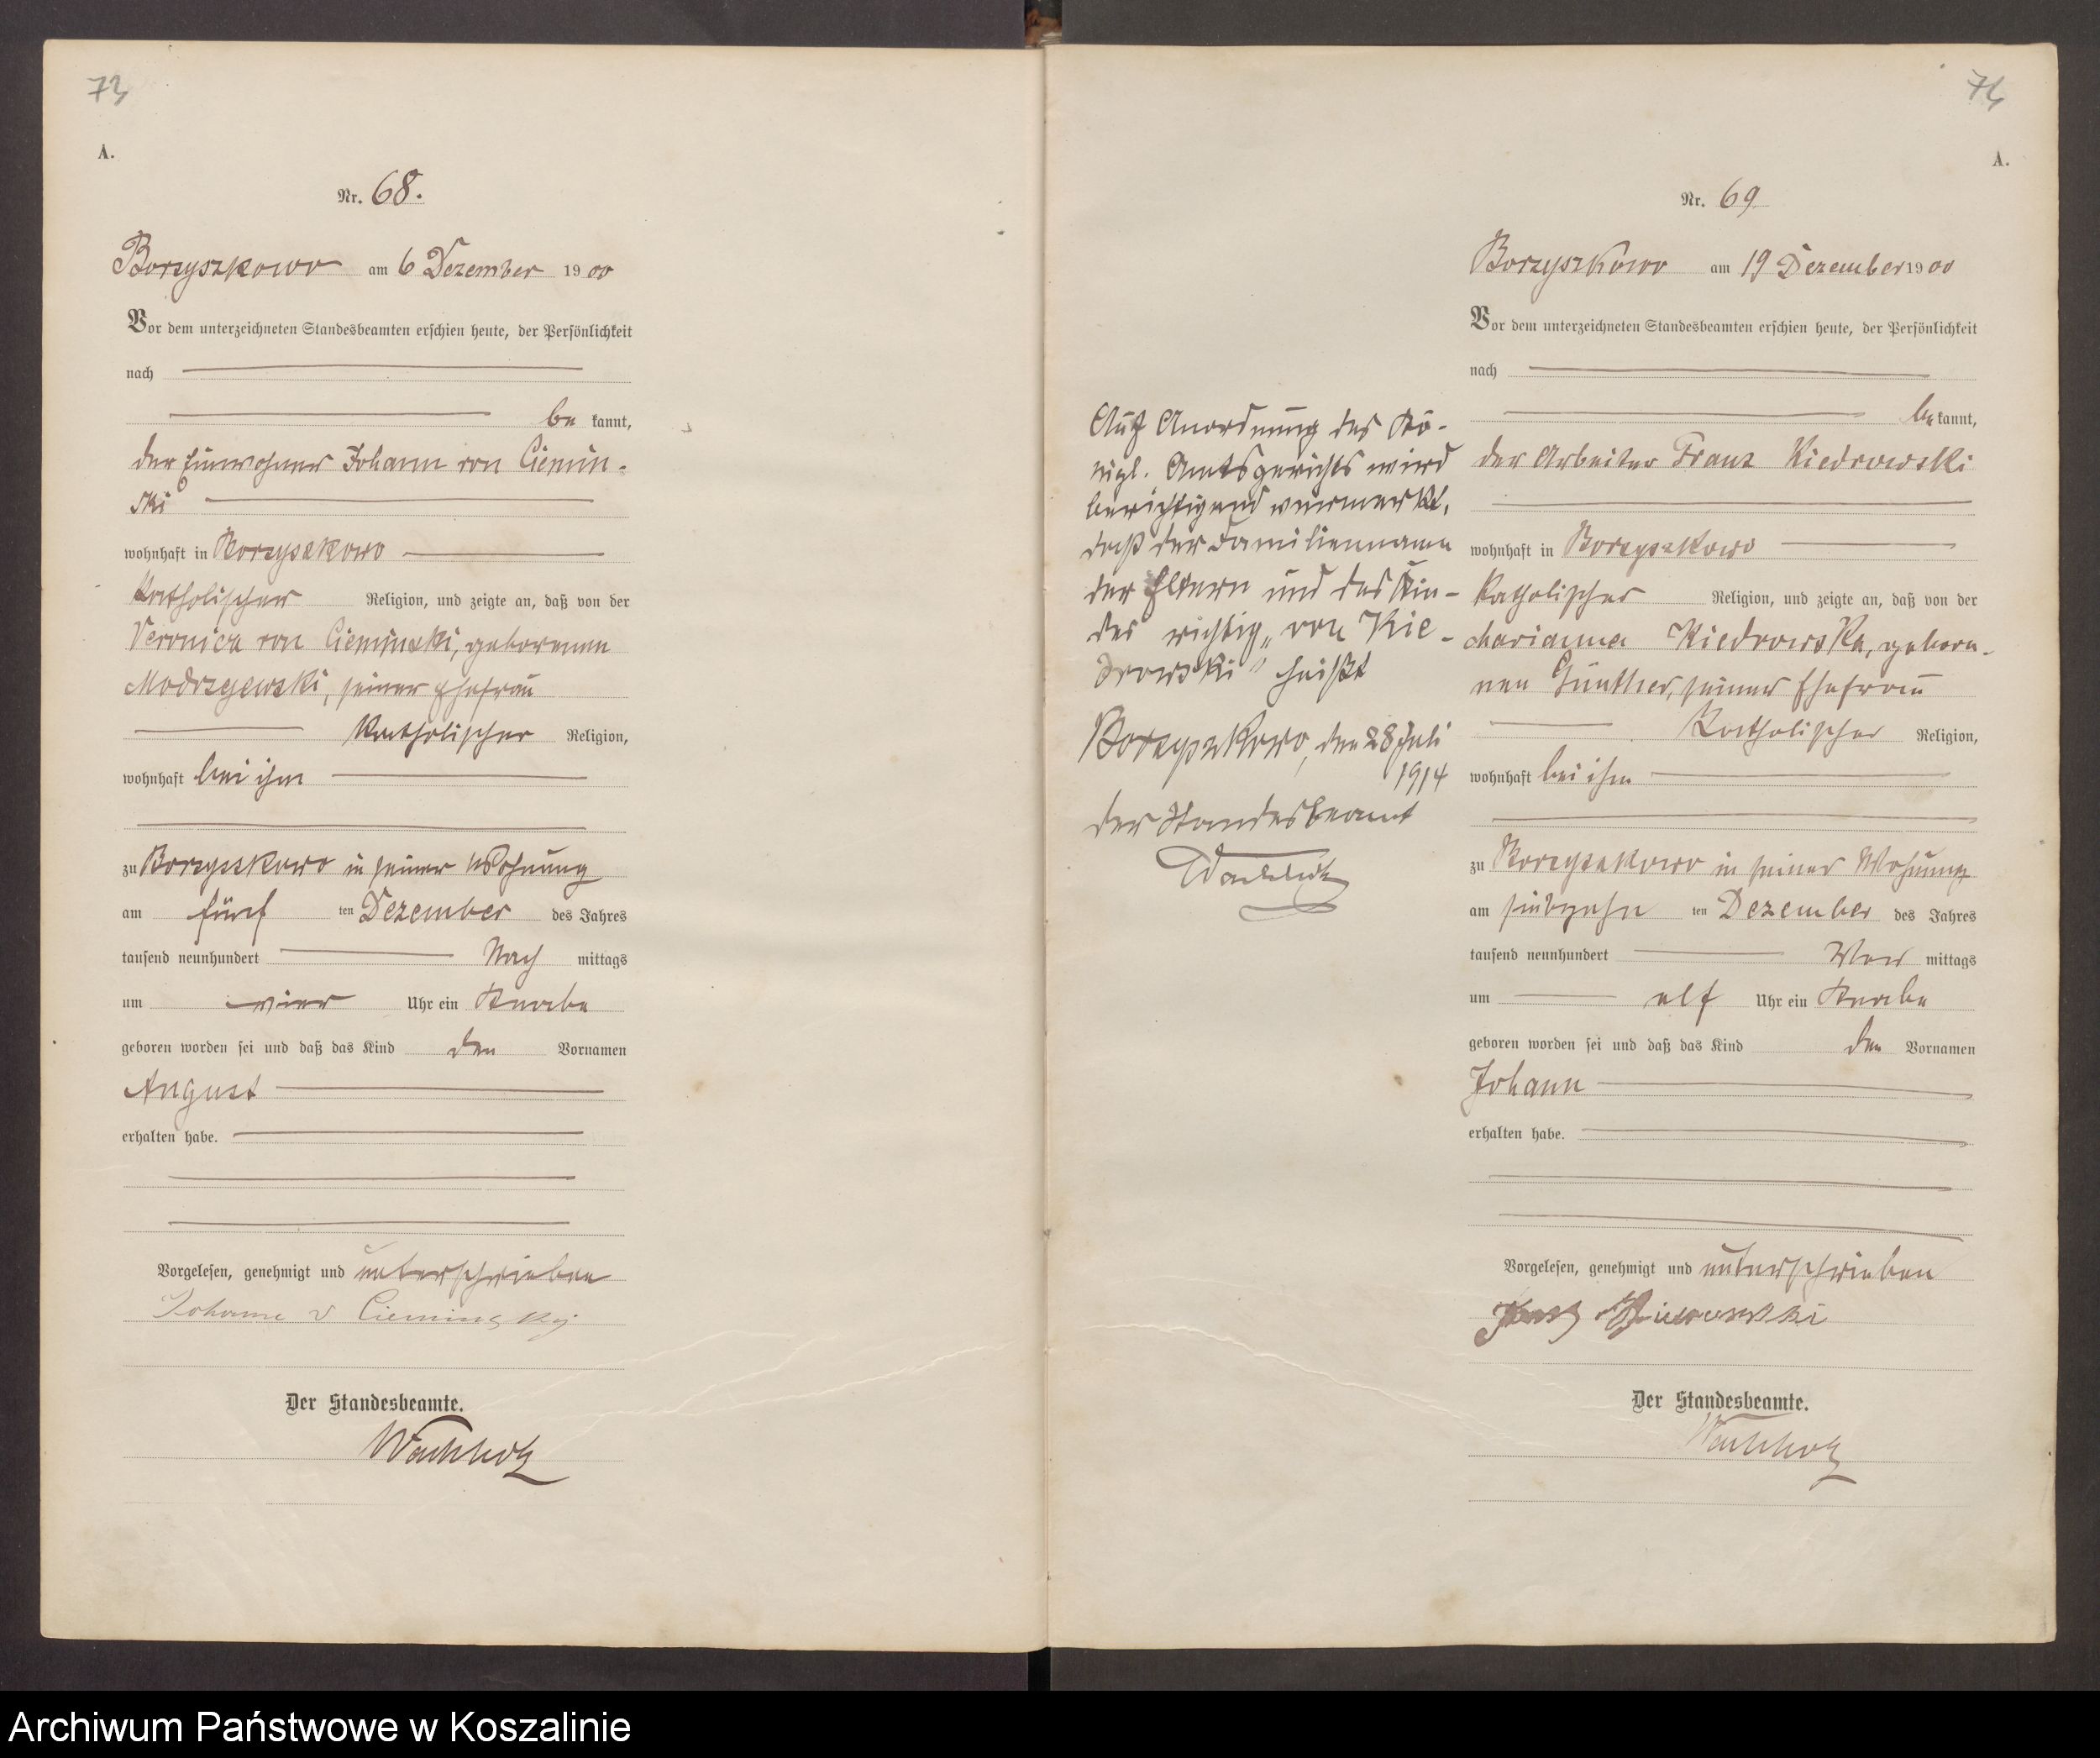 73
A.
Nr. 68.
Borzyszkowo am 6 Dezember 1900
Vor dem unterzeichneten Standesbeamten erschien heute, der Persönlichkeit
nach
be kannt,
der Einwohner Johann von Ciemin-
ski
wohnhaft in Borzyszkowo
katholischer Religion, und zeigte an, daß von der
Veronica von Cieminski, geborenen
Modrzejewski, seiner Ehefrau
katholischer Religion,
wohnhaft bei ihm
zu Borzyszkowo in seiner Wohnung
am fünf ten Dezember des Jahres
tausend neunhundert Nach mittags
um vier Uhr ein Knabe
geboren worden sei und daß das Kind den Vornamen
August
erhalten habe.
Vorgelesen, genehmigt und unterschrieben
Johann v Cieminskij
Der Standesbeamte.
Wachholz
74
A.
Nr. 69
Borzyszkowo am 19 Dezember 1900
Vor dem unterzeichneten Standesbeamten erschien heute, der Persönlichkeit
nach
be kannt,
der Arbeiter Franz Kiedrowski
wohnhaft in Borzyszkowo
katholischer Religion, und zeigte an, daß von der
Marianna Kiedrowska, gebore-
nen Günther, seiner Ehefrau
katholischer Religion,
wohnhaft bei ihm
zu Borzyszkowo in seiner Wohnung
am siebzehn ten Dezember des Jahres
tausend neunhundert Vor mittags
um elf Uhr ein Knabe
geboren worden sei und daß das Kind den Vornamen
Johann
erhalten habe.
Vorgelesen, genehmigt und unterschrieben
Kiedrowski
Der Standesbeamte.
Wachholz
Auf Anordnung des Kö-
nigl. Amtsgerichts wird
berichtigend vermerkt,
daß der Familienname
der Eltern und des Kin-
des richtig „von Kie-
drowski" heißt
Borzyszkowo, den 28 Juli
1914
der Standesbeamt
Wachholz
Archiwum Państwowe w Koszalinie